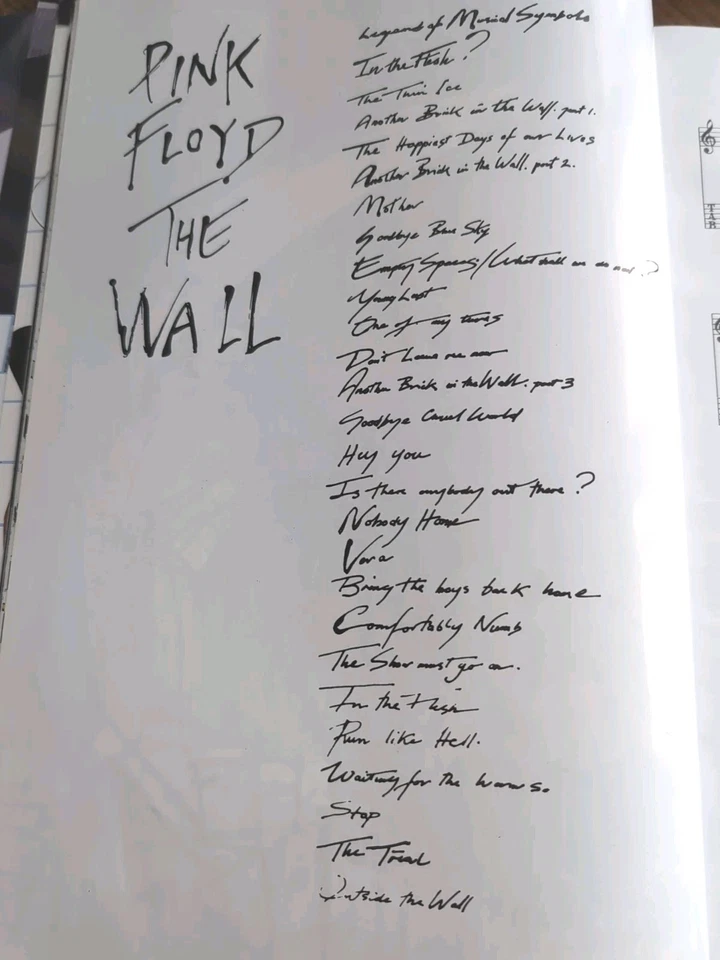 PINK
FLOYD
THE
WALL
Legend of Musical Symbols
In the Flesh?
The Thin Ice
Another Brick in the Wall. part 1.
The Happiest Days of our Lives
Another Brick in the Wall. part 2.
Mother
Goodbye Blue Sky
Empty Spaces/What shall we do now?
Young Lust
One of my turns
Don't Leave me now
Another Brick in the Wall. part 3
Goodbye Cruel World
Hey you
Is there anybody out there?
Nobody Home
Vera
Bring the boys back home
Comfortably Numb
The Show must go on.
In the Flesh
Run like Hell.
Waiting for the worms.
Stop
The Trial
Outside the Wall
TAB